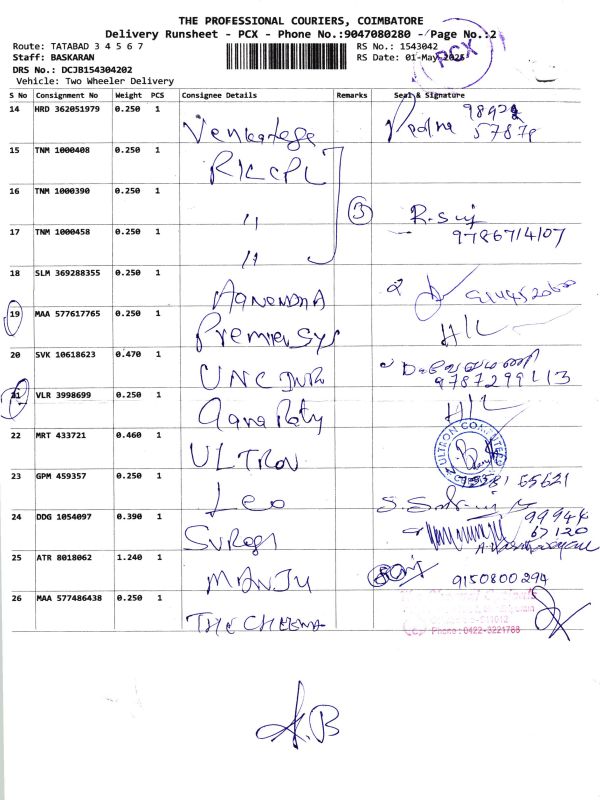 THE PROFESSIONAL COURIERS, COIMBATORE
Delivery Runsheet - PCX - Phone No.:9047080280 - Page No.:2
Route: TATABAD 3 4 5 6 7
RS No.: 1543042
Staff: BASKARAN
RS Date: 01-May-2025
PCX
DRS No.: DCJB154304202
Vehicle: Two Wheeler Delivery
S No Consignment No Weight PCS Consignee Details Remarks Seal & Signature
14 HRD 362051979 0.250 1
Venkatesa
15 TNM 1000408 0.250 1
RKCPL
16 TNM 1000390 0.250 1
"
3
17 TNM 1000458 0.250 1
"
9786714107
18 SLM 369288355 0.250 1
19 MAA 577617765 0.250 1
Premier Sys
H/L
20 SVK 10618623 0.470 1
UNC
21 VLR 3998699 0.250 1
H/L
22 MRT 433721 0.460 1
ULTRON
ULTRON
23 GPM 459357 0.250 1
Leo
65621
24 DDG 1054097 0.390 1
99944
67120
25 ATR 8018062 1.240 1
MANJU
9150800294
26 MAA 577486438 0.250 1
THE CHENNA
Phone: 0422-3221788
A.B